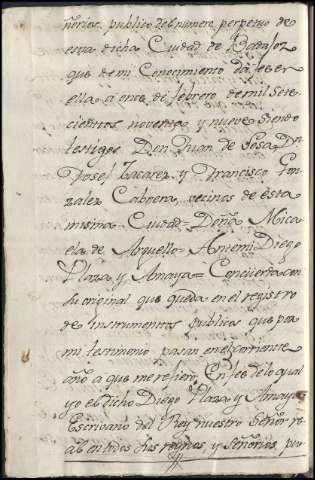 ñorios, publico del numero perpetuo de
esta dicha Ciudad de Badajoz
que de mi Conocimiento da fe es en
ella a once de febrero de mil sete
cientos noventa y nueve siendo
testigos Don Juan de Sosa Dn
Josef y Francisco Gon
zalez Cabrera, vecinos de esta
misma Ciudad= Doña Mica
ela de Arguello= Antemi Diego
Plaza y Amaya= Concuerda con
su original que queda en el registro
de instrumentos publicos que por
mi testimonio pasan en el corriente
año a que me refiero, En fee de lo qual
yo el dicho Diego Plaza y Amaya
Escribano del Rey nuestro Señor re
al en todos sus reynos, y Señorios, pu